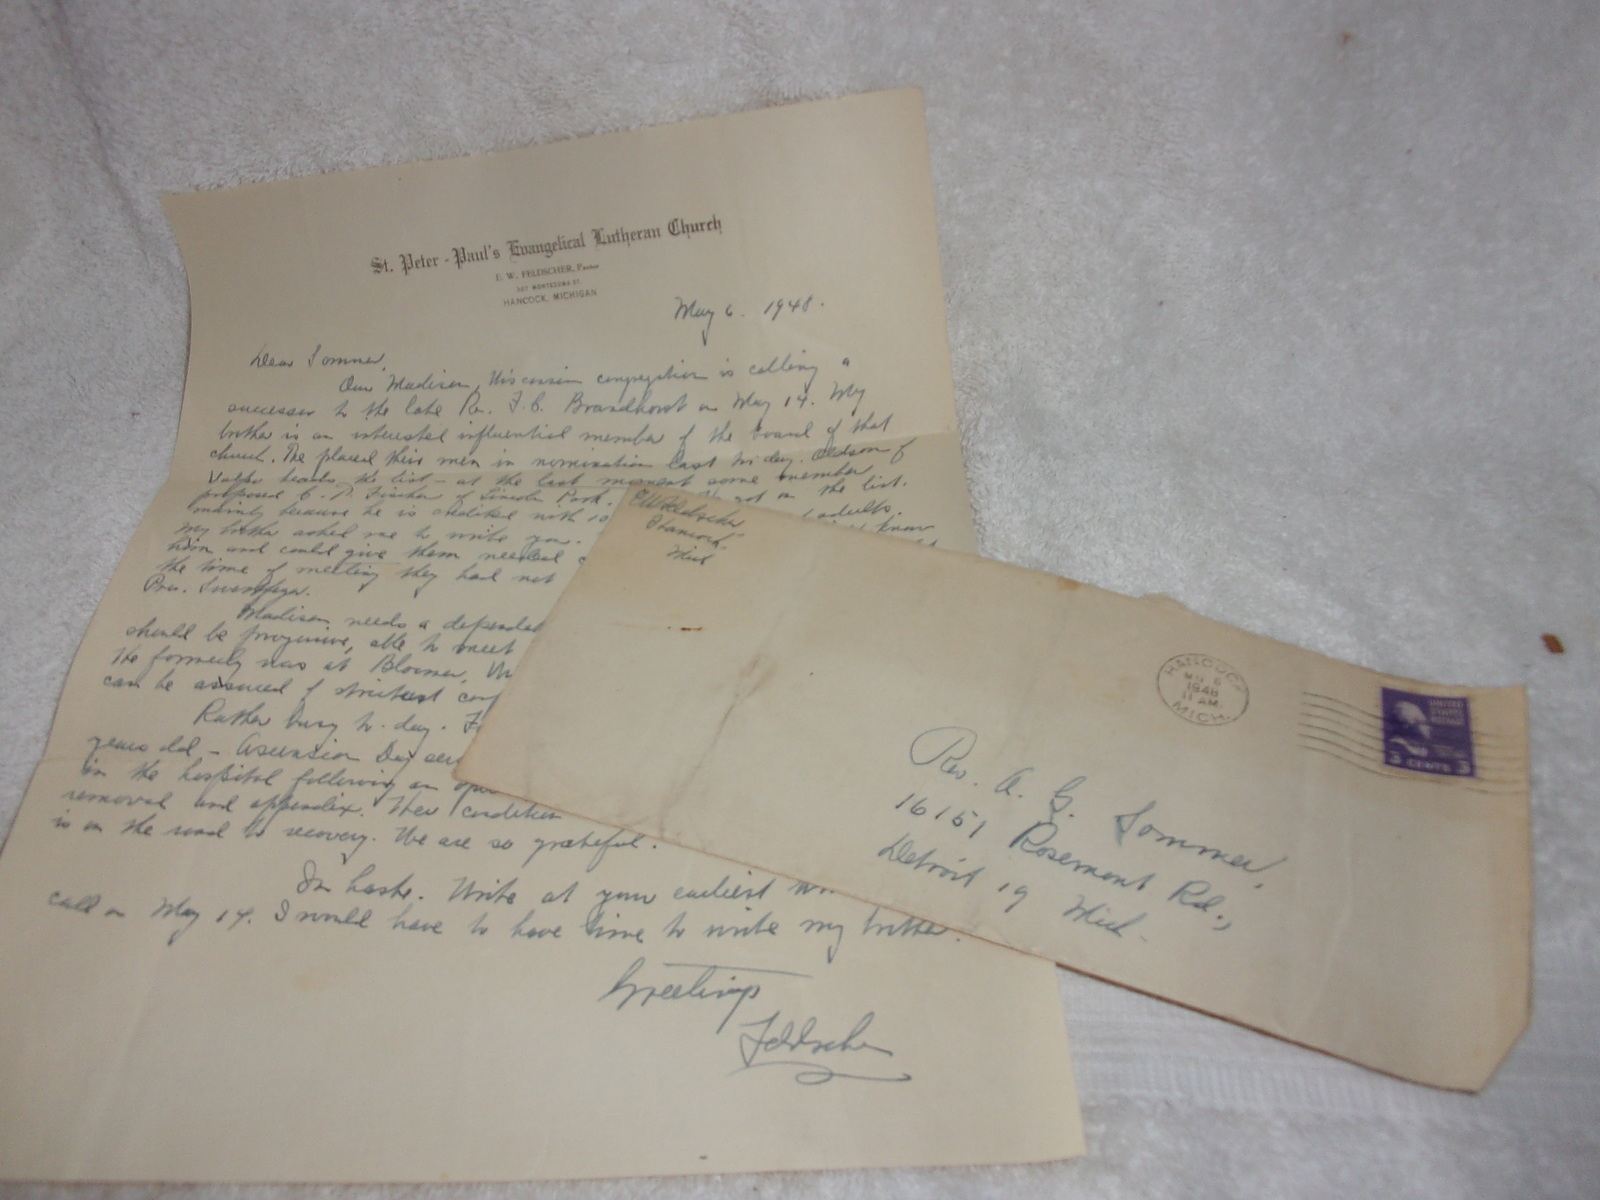 St. Peter - Paul's Evangelical Lutheran Church
E. W. FELDSCHER, Pastor
MONTEZUMA ST.
HANCOCK, MICHIGAN
May 6. 1948.
Dear Sommer,
Our Madison, Wisconsin congregation is calling a
successor to the late Rev. F. C. Brandhorst on May 14. My
brother is an interested influential member of the board of that
church. He placed their men in nomination last
Valpo heads the list - at the last moment some member
proposed C. Fischer of Lincoln Park. got on the list.
mainly because he is credited with 10 adults.
My brother asked me to write you. know
him and could give them needed
the time of meeting they had not
Pres.
Madison needs a
should be progressive, able to meet
He formerly was at Bloomer,
can be assured of strictest
Rather busy to-day.
years old - Ascension Day
in the hospital following an
removal and appendix. Her condition
is on the road to recovery. We are so grateful.
In haste. Write at your earliest
call on May 14. I would have to have time to write my brother.
Greetings
Feldscher
E W Feldscher
Hancock
Mich
HANCOCK
6
1948
11 AM
MICH.
UNITED
STATES
POSTAGE
3 CENTS 3
Rev. A. G. Sommer,
16151 Rosemont Rd.,
Detroit 19 Mich.